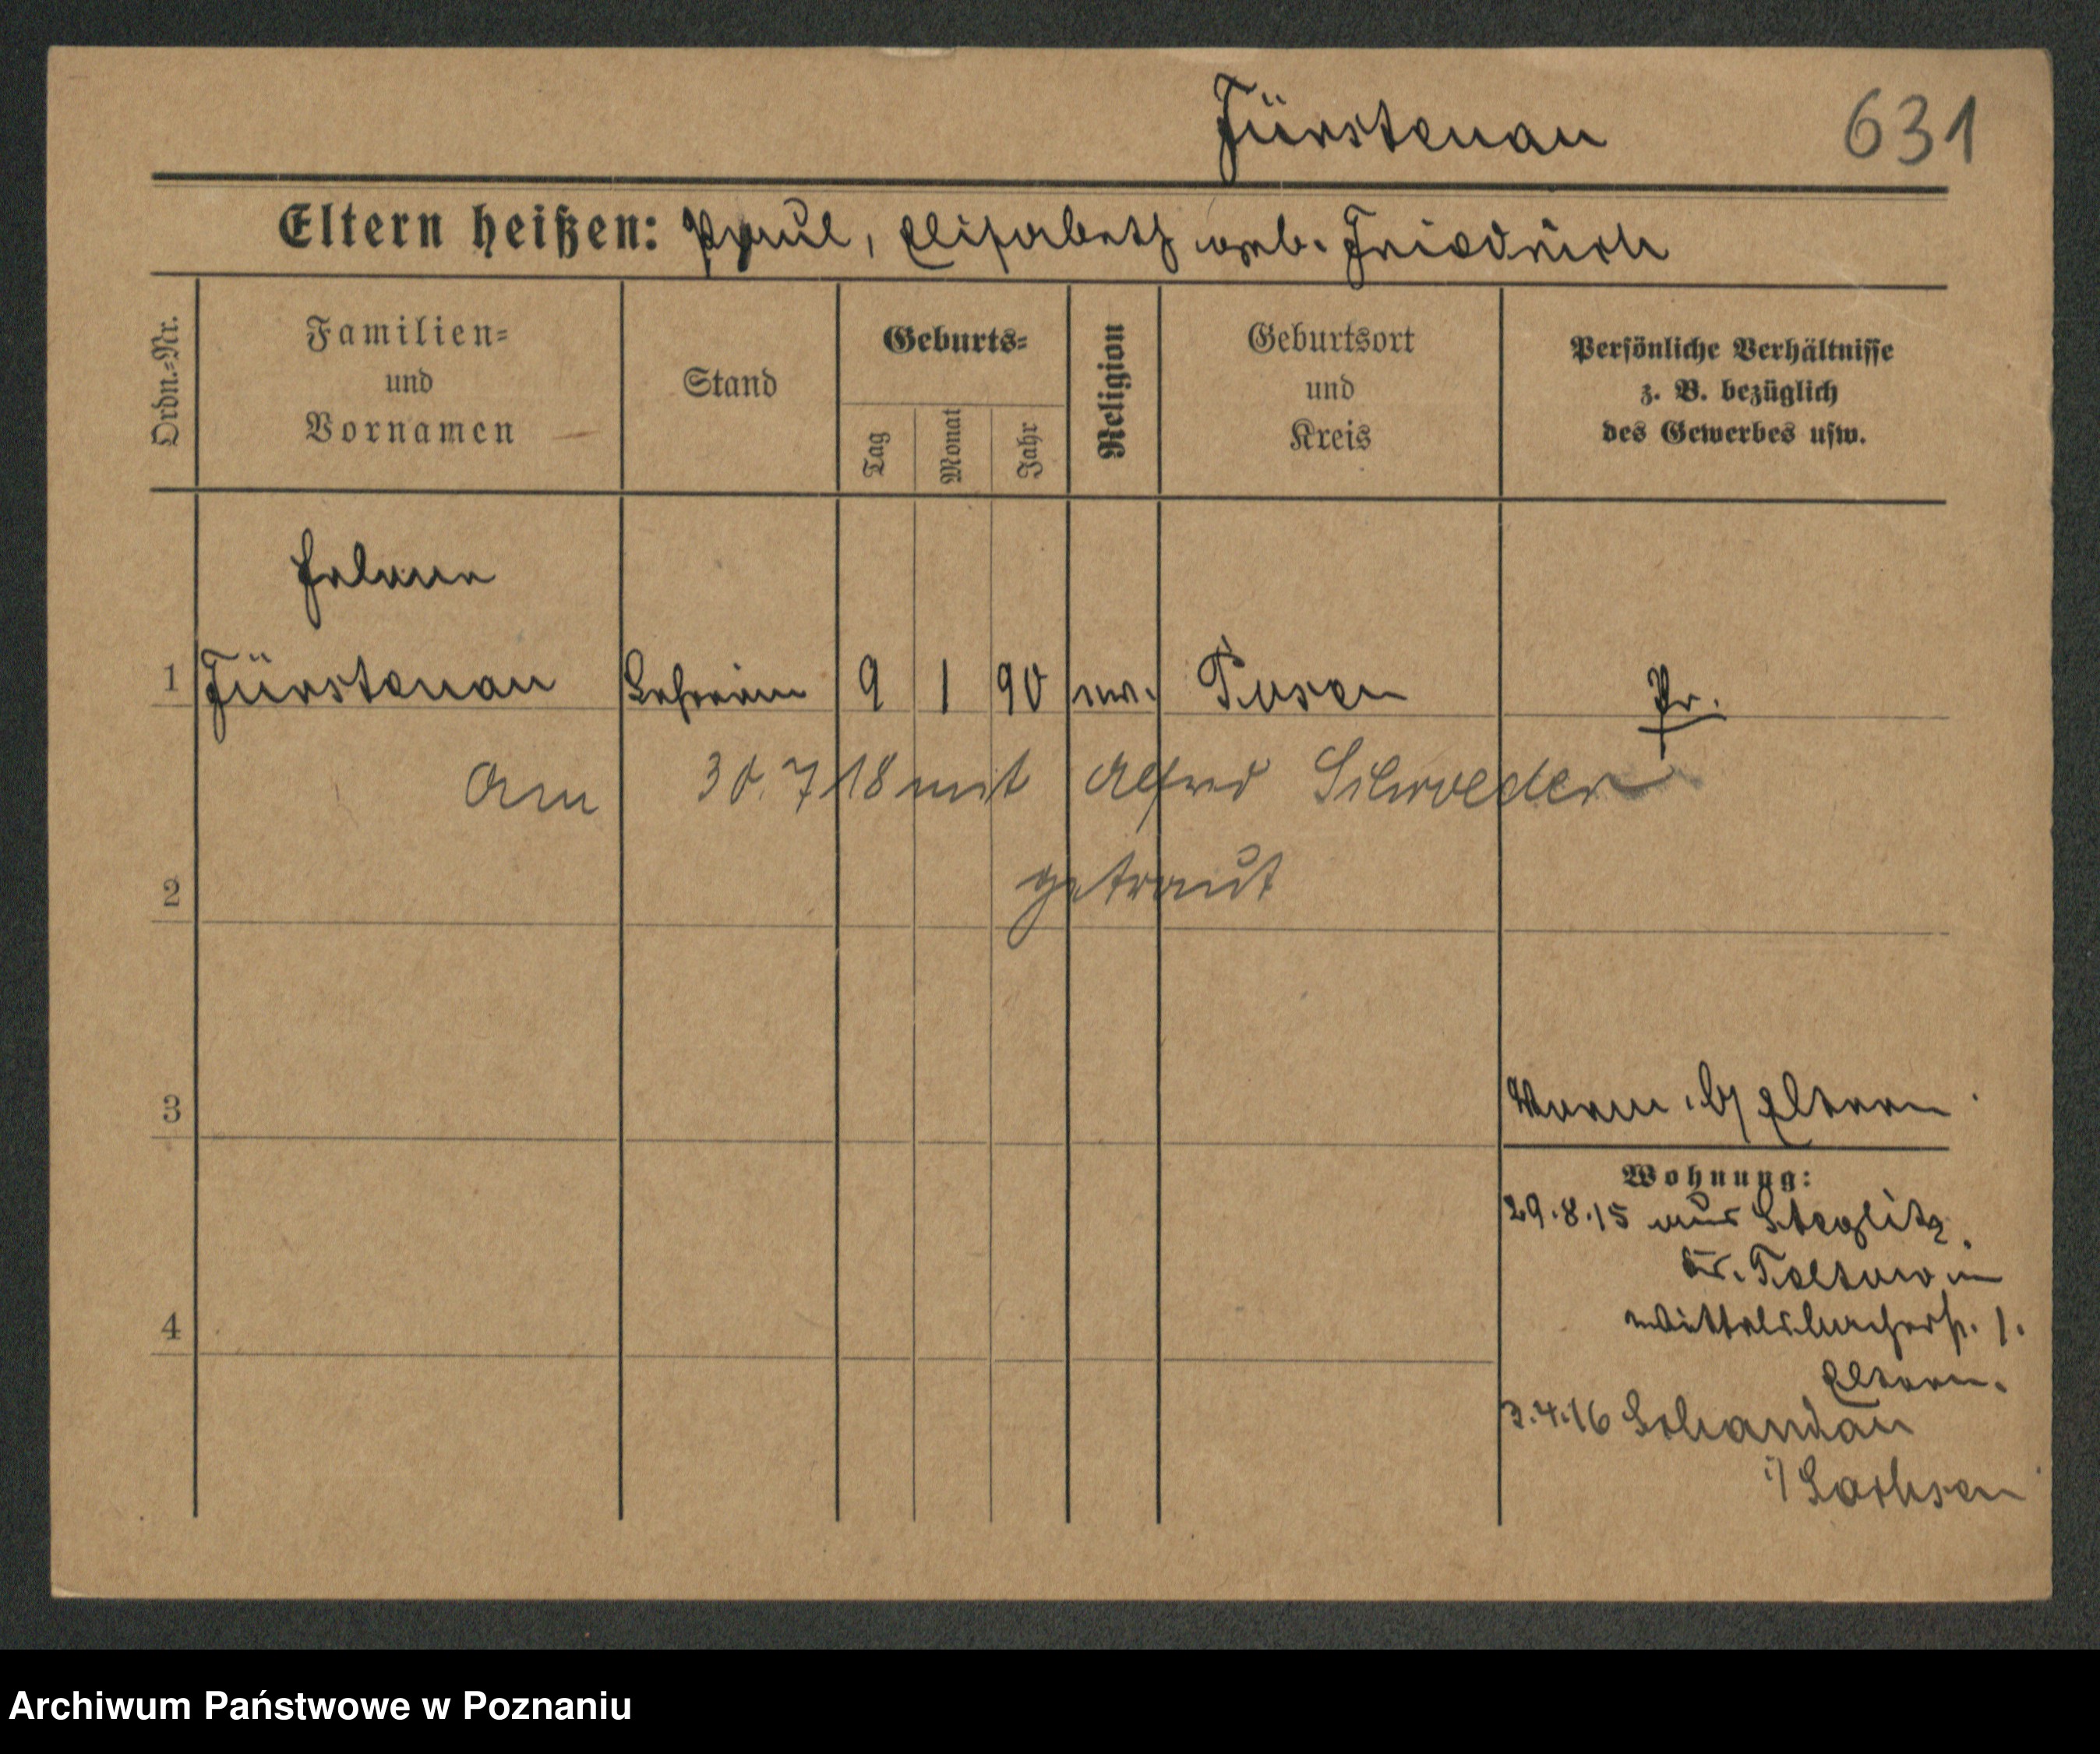 Fürstenau 631
Eltern heißen: Paul, Elisabeth geb. Friedrich
Ordn.=Nr.
Familien=
und
Vornamen
Stand
Geburts=
Tag
Monat
Jahr
Religion
Geburtsort
und
Kreis
Persönliche Verhältnisse
z. B. bezüglich
des Gewerbes usw.
1 Fürstenau Lehrerin 9 1 90 ev. Posen Pr.
Am 30.7 18 mit Alfred Schroeder
getraut
2
3 Eltern
Wohnung:
29.8.15 aus Steglitz,
Kr. Teltow in
Wittelsbacherstr. 1.
Eltern.
3.4.16 Schandau
i/ Sachsen
4
Archiwum Państwowe w Poznaniu